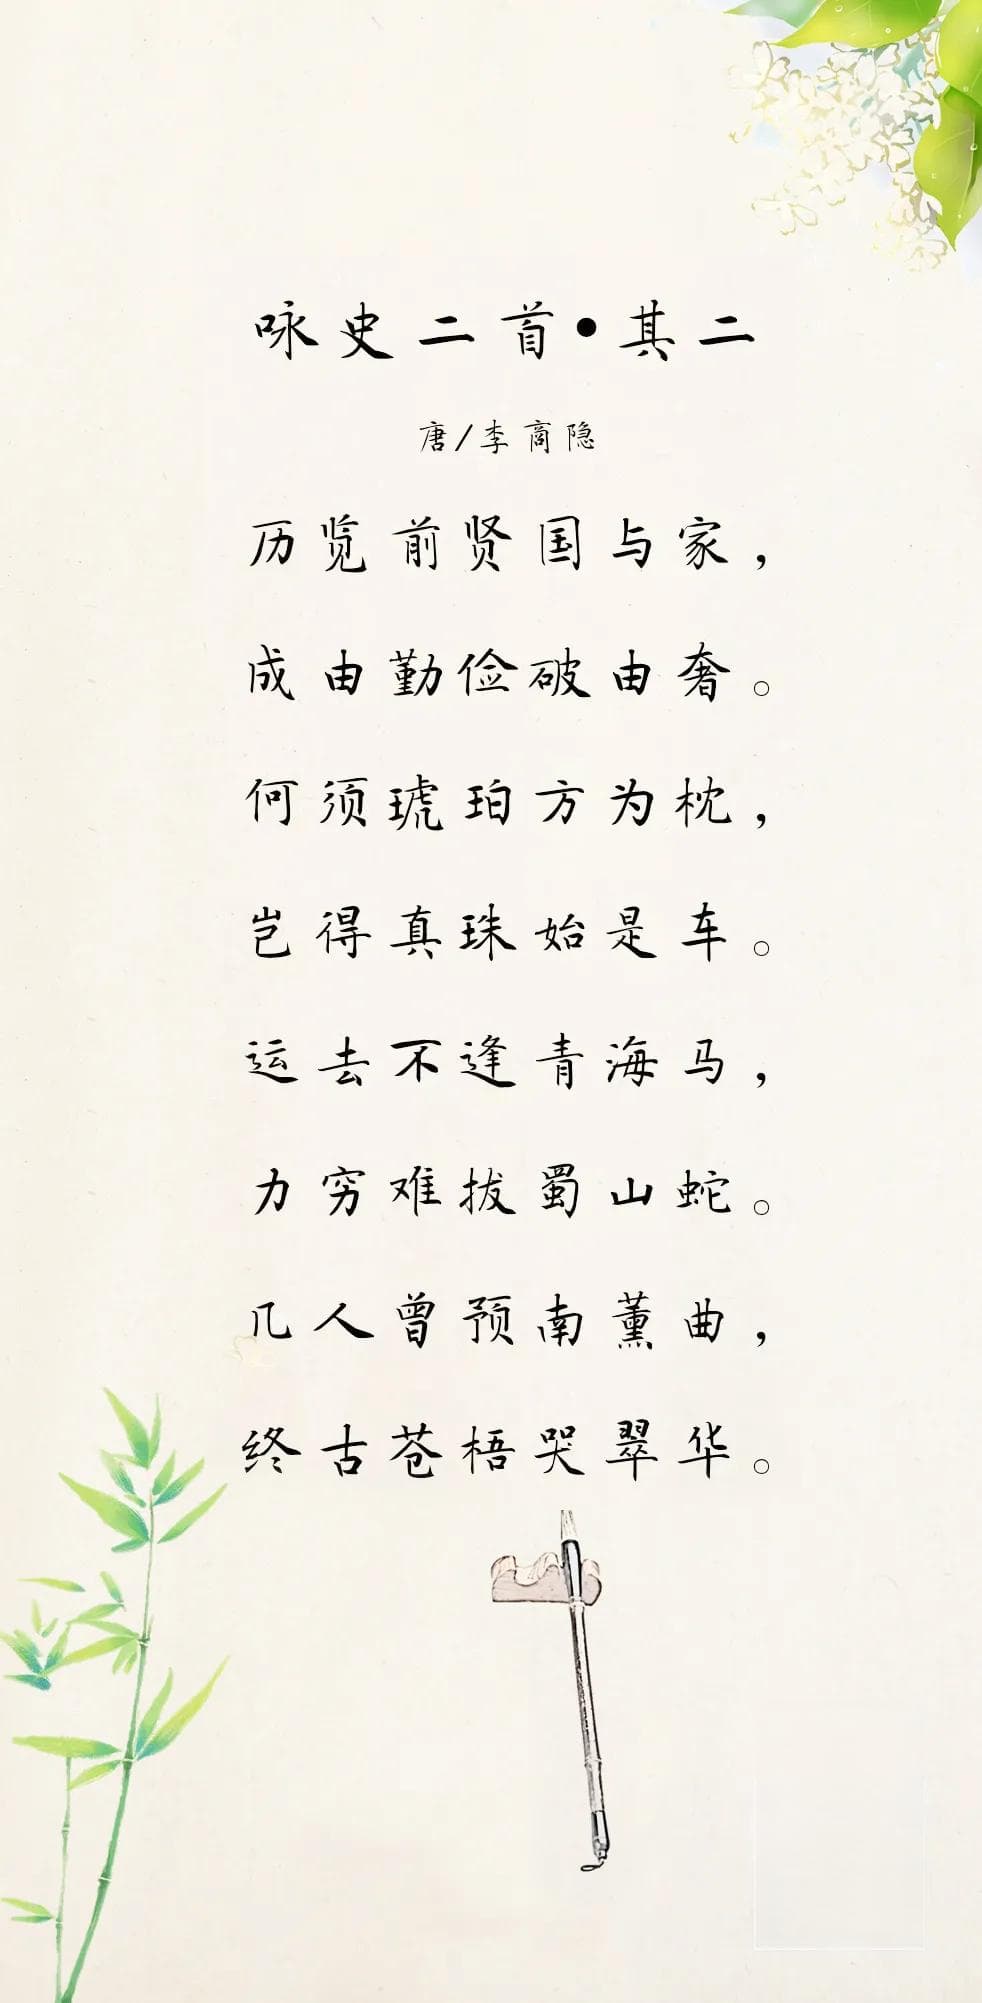 咏史二首•其二
唐/李商隐
历览前贤国与家，
成由勤俭破由奢。
何须琥珀方为枕，
岂得真珠始是车。
运去不逢青海马，
力穷难拔蜀山蛇。
几人曾预南薰曲，
终古苍梧哭翠华。